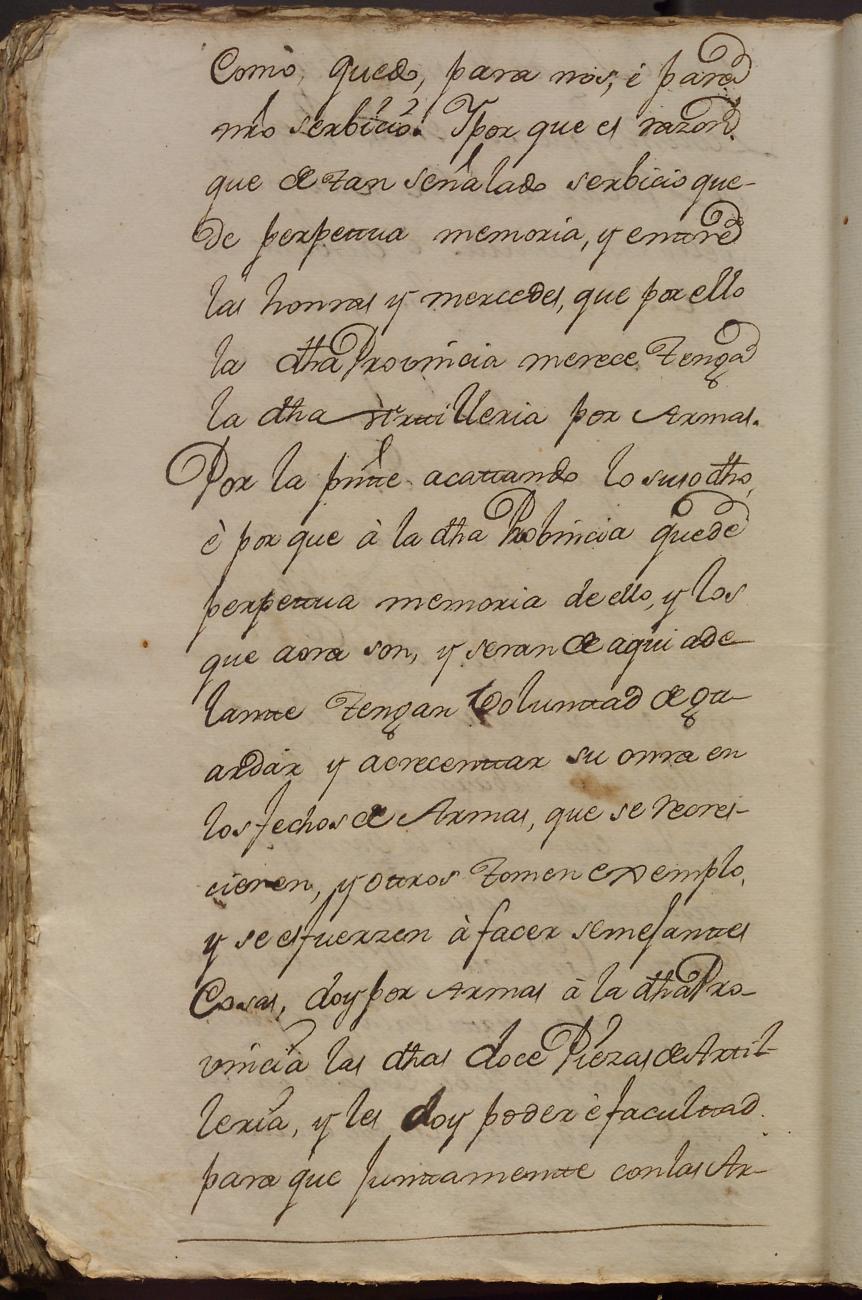 Comò, quedo, para nos, è para
nr̃o serbicio. Y por que es razon
que de tan señalado serbicio que-
de perpettua memoria, y enttre
las honras y mercedes, que por ello
la dha Provincia merece Tenga
la dha Arttilleria por Armas.
Por la pñtte acattando lo susodho,
è por que à la dha Probincia quede
perpettua memoria de ello, y los
que aora son, y seran de aqui ade
lantte Tengan Volunttad de gu-
ardar y acrecenttar su onra en
los fechos de Armas, que se recres-
cieren, y ottros Tomen exemplo,
y se esfuerzen à facer semejanttes
Cosas, doy por Armas à la dha Pro-
vincia las dhas doce Piezas de Arttil-
leria, y les doy poder è faculttad
para que Junttamentte con las Ar-